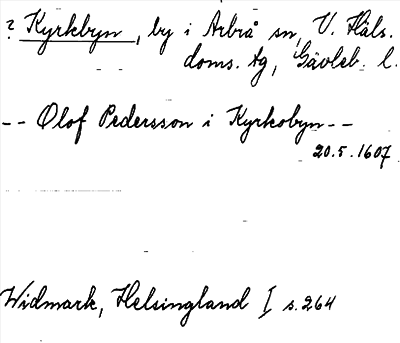 ? Kyrkbyn, by i Arbrå sn, V. Häls.
doms. tg, Gävleb. l.
-- Olof Pedersson i Kyrkobyn --
20.5.1607
Widmark, Helsingland I s. 264